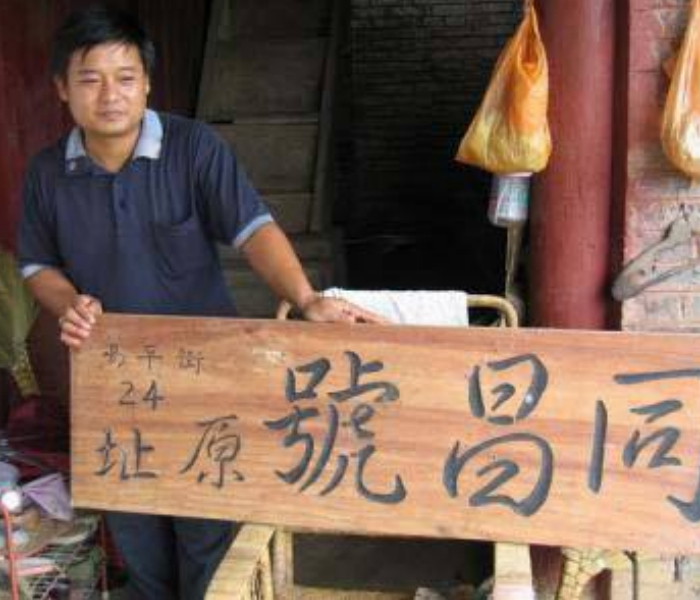 同昌號原址
昇平街
24